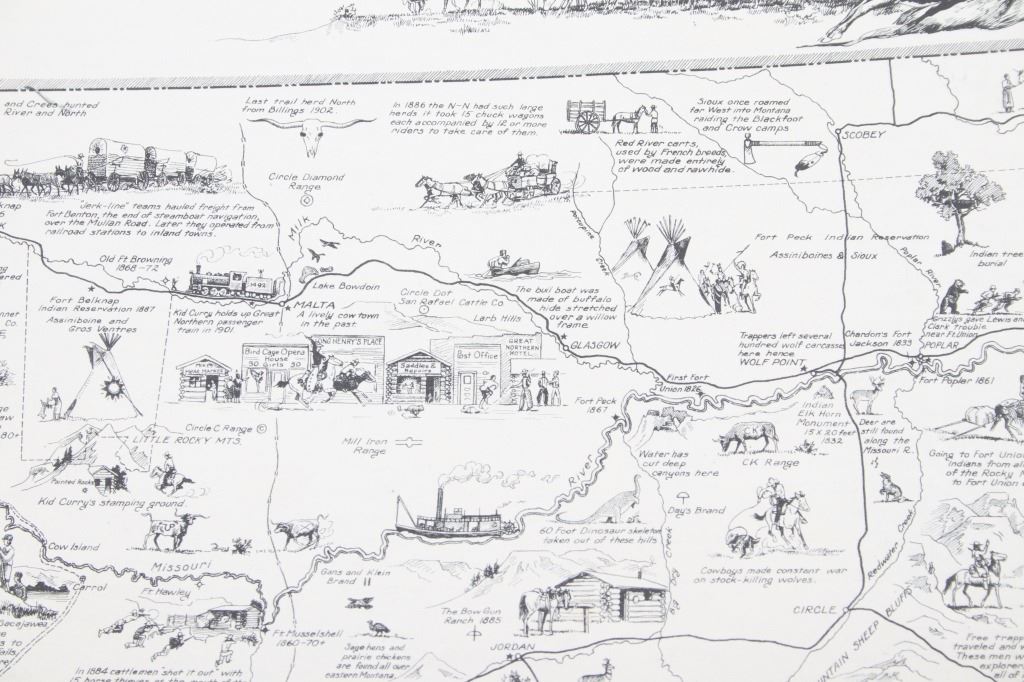 and Crees hunted
River and North
Last trail herd North
from Billings 1902.
In 1886 the N-N had such large
herds it took 15 chuck wagons
each accompanied by 12 or more
riders to take care of them.
Sioux once roamed
far West into Montana
raiding the Blackfoot
and Crow camps
SCOBEY
Red River carts,
used by French breeds,
were made entirely
of wood and rawhide.
Circle Diamond
Range
"Jerk-line" teams hauled freight from
Fort Benton, the end of steamboat navigation,
over the Mullan Road. Later they operated from
railroad stations to inland towns.
Milk
River
Porcupine
Creek
Fort Peck Indian Reservation
Assiniboines & Sioux
Poplar River
Indian tree
burial
Old Ft Browning
1868-72
Lake Bowdoin
Fort Belknap
Indian Reservation 1887
Assiniboine and
Gros Ventres
Kid Curry holds up Great
Northern passenger
train in 1901
MALTA
A lively cow town
in the past.
Circle Dot
San Rafael Cattle Co.
Larb Hills
The bull boat was
made of buffalo
hide stretched
over a willow
frame.
GLASGOW
Trappers left several
hundred wolf carcasses
here hence
WOLF POINT
Chardon's Fort
Jackson 1833
Grizzlys gave Lewis and
Clark trouble
near Ft. Union
POPLAR
Bird Cage Opera
House
50 Girls 50
LONG HENRY'S PLACE
Saddles &
Repairs
Post Office
GREAT
NORTHERN
HOTEL
First Fort
Union 1826
Fort Peck
1867
Fort Poplar 1861
Indian
Elk Horn
Monument
15 X 20 feet
1832
Deer are
still found
along the
Missouri R.
Circle C Range
LITTLE ROCKY MTS.
80+
Mill Iron
Range
CK
CK Range
Water has
cut deep
canyons here
Going to Fort Union
Indians from all
of the Rocky M
to Fort Union
Painted Rocks
Kid Curry's stamping ground.
River
Day's Brand
60 Foot Dinosaur skeleton
taken out of these hills
Creek
Cow Island
Missouri
Cowboys made constant war
on stock-killing wolves.
Redwater Creek
Carrol
Ft Hawley
Gans and Klein
Brand
The Bow Gun
Ranch 1885
CIRCLE
BLUFFS
Sacajawea
Ft Musselshell
1860-70+
Sage hens and
prairie chickens
are found all over
eastern Montana.
JORDAN
In 1884 cattlemen "shot it out" with
15 horse thieves at the mouth of the
Free trapp
traveled and w
These men w
explorer
all of